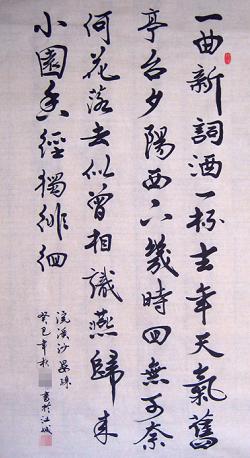 一曲新詞酒一杯去年天氣舊
亭台夕陽西下幾時回無可奈
何花落去似曾相識燕歸来
小園香經獨徘徊
浣溪沙晏殊
癸巳年秋 書於江城